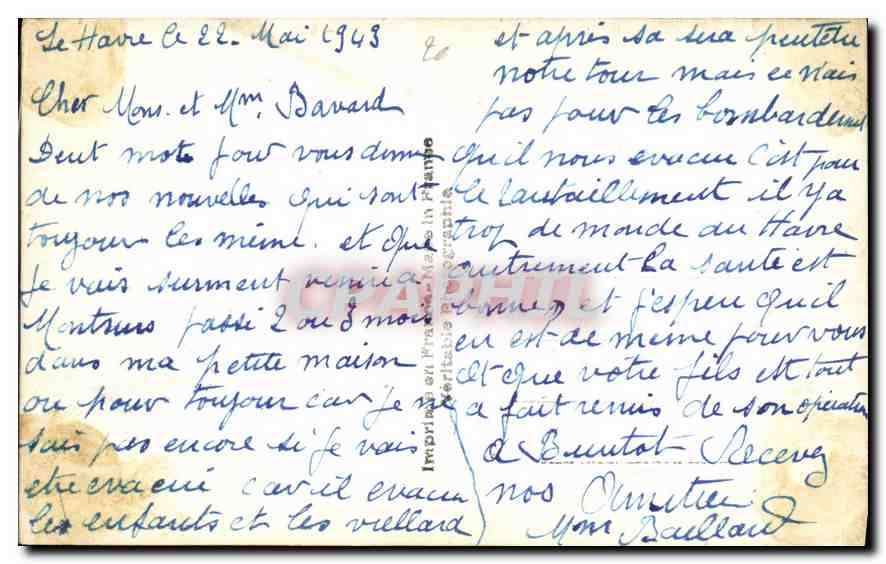 Le Havre le 22. Mai 1943
Cher Mons. et Mm. Bavard
Deut mots pour vous donner
de nos nouvelles qui sont
toujour les même. et que
Je vais surment venir a
Montsurs passi 2 ou 3 mois
dans ma petite maison
ou pour toujour car je ne
sais pas encore si je vais
etre evacué car il evacu
les enfants et les viellard
et après sa sera peutetre
notre tour mais ce n'ais
pas pour les bombardement
qu'il nous evacu c'est pour
le ravitaillement il y a
trop de monde au Havre
autrement la santé est
bonne, et j'espeu qu'il
en est de même pour vous
et que votre fils est tout
a fait remis de son opération
a Bientot Recevez
nos Amitié
Mm Baillard
20
Imprimé en France - Made in France
Véritable Photographie
CPAPHIL